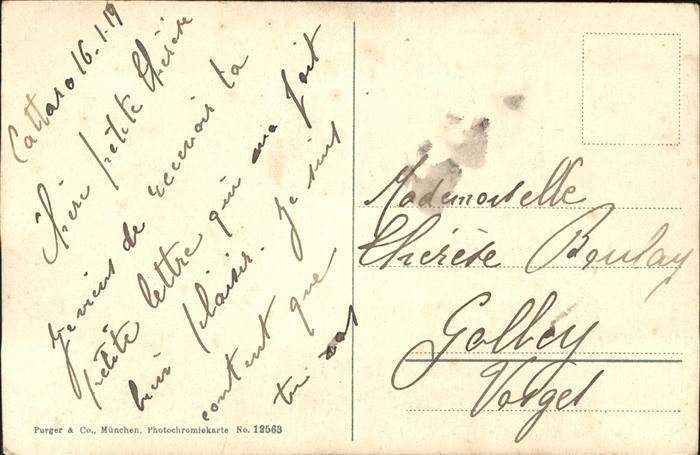 Cattaro 16.1.19
Chère petite Thérèse
Je viens de recevoir ta
petite lettre qui ma fait
bien plaisir. Je suis
content que
tu as
Mademoiselle
Thérèse Boulay
Golbey
Vosges
Purger & Co., München, Photochromiekarte No. 12563